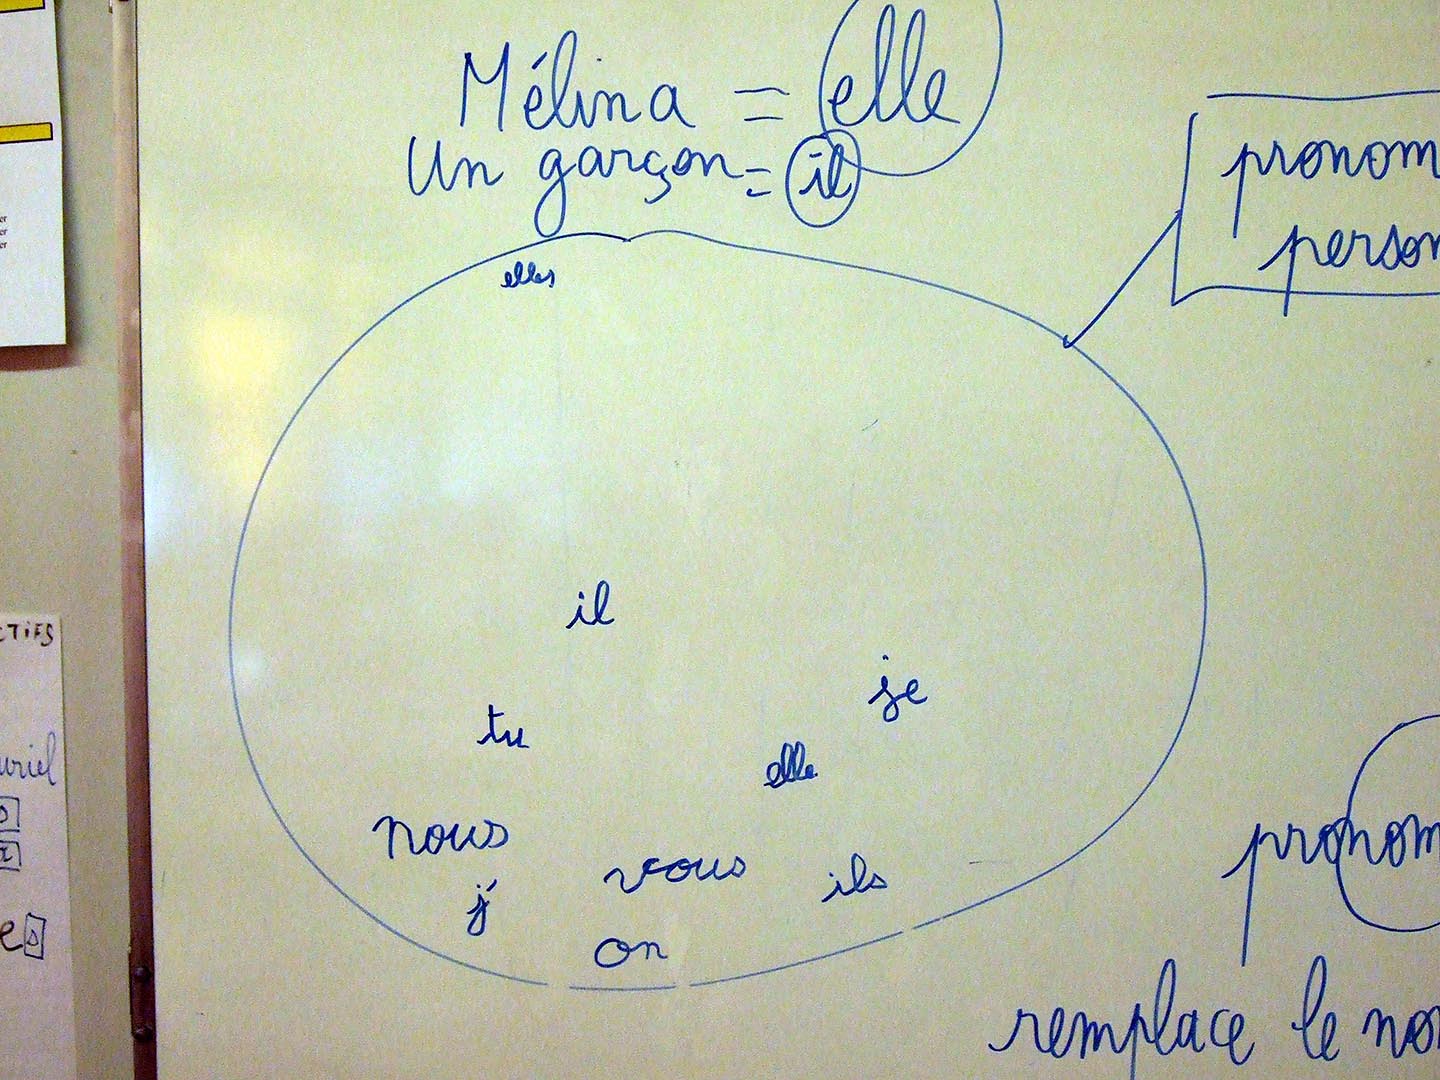 Mélina = elle
Un garçon = il
pronom
person
elles
il
je
tu
elle
nous
vous
ils
j'
on
pronom
remplace le nom
er
er
er
CTIFS
uriel
e s